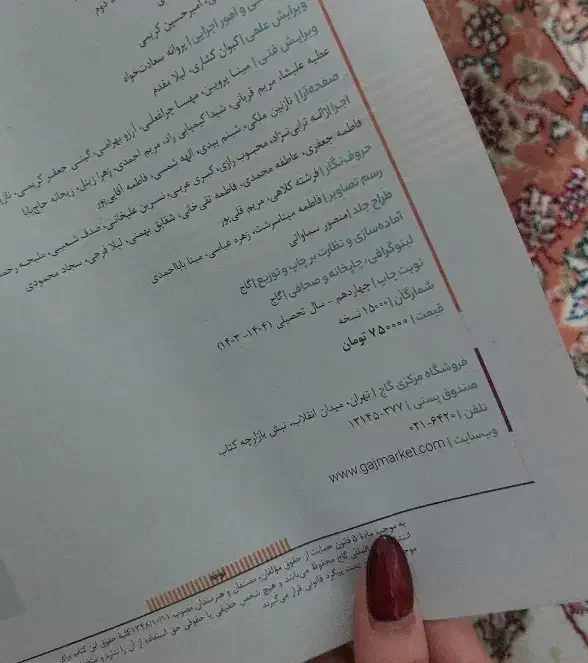 دوم
امیرحسین کریمی
و امور اجرایی | پروانه سعادت‌خواه
ویرایش علمی | کیوان گشاری، لیلا مقدم
ویرایش فنی | مینا پروین، مهسا چراغعلی، آرزو بهرامی، گیتی جعفر کریمی،
عطیه علیشا، مریم قربانی، شیدا کیمیایی راد، مریم احمدی، زهرا زینل، ریحانه حاج‌بابا
صفحه‌آرا | نازنین ملکی، شبنم بیدی، الهه شمسی، فاطمه آقایی‌پور
اجرا | ژاله ترابی‌نژاد، محبوب رازی، کسری عربی، نسرین علیخانی، صدف شعیبی، ملیحه
فاطمه جعفری، عاطفه محمدی، فاطمه تقی‌خانی، شقایق بهمنی، لیلا فرجی، سجاد محمودی
حروف‌نگار | فرشته کلاهی، مریم قلی‌پور
رسم تصاویر | فاطمه میناسرشت، زهره عباسی، مینا باباحمدی
طراح جلد | منصور سماواتی
آماده‌سازی و نظارت بر چاپ و توزیع | گاج
لیتوگرافی، چاپخانه و صحافی | گاج
نوبت چاپ | چهاردهم - سال تحصیلی (۱۴۰۴-۱۴۰۳)
شمارگان | ۱۵۰۰۰ نسخه
قیمت | ۷۵۰۰۰۰ تومان
فروشگاه مرکزی گاج | تهران، میدان انقلاب، نبش بازارچه کتاب
صندوق پستی | ۳۷۷-۱۳۱۴۵
تلفن | ۶۴۲۰-۰۲۱
وب‌سایت | www.gajmarket.com
به موجب ماده ۵ قانون حمایت از حقوق مؤلفان، مصنفان و هنرمندان مصوب ۱۳۴۸/۱۰/۱۱ کلیهٔ حقوق این کتاب برای
گاج محفوظ می‌باشد و هیچ شخص حقیقی یا حقوقی حق استفاده از آن را ندارد و
تحت پیگرد قانونی قرار می‌گیرند.